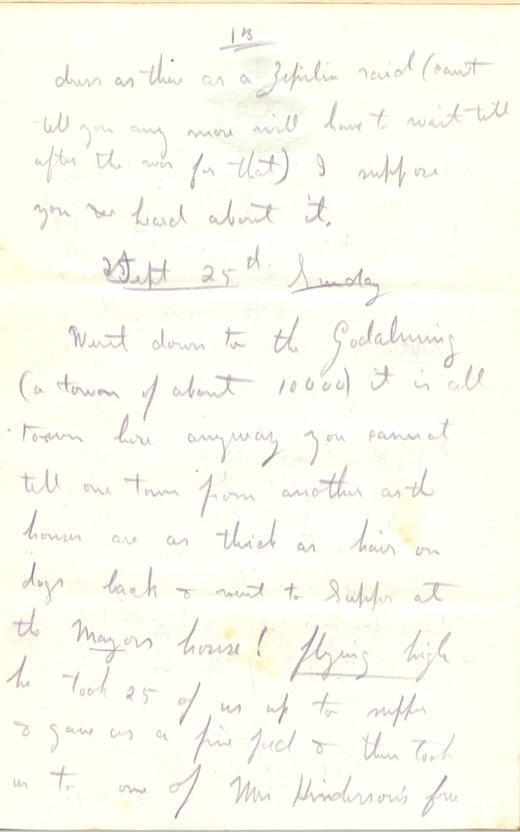 13
as this as a Zepilin raid (cant
tell you any more will have to wait till
after the war for that) I suppose
you heard about it.
Sept 25 d. Sunday
Went down to the Godalming
(a town of about 10000) it is all
town here anyway you cannot
tell one town from another as th
houses are as thick as hair on
dogs back & went to Supper at
the Mayors house! flying high
he took 25 of us up to supper
& gave us a fine feed & then took
us to one of Mrs Hinderson's free